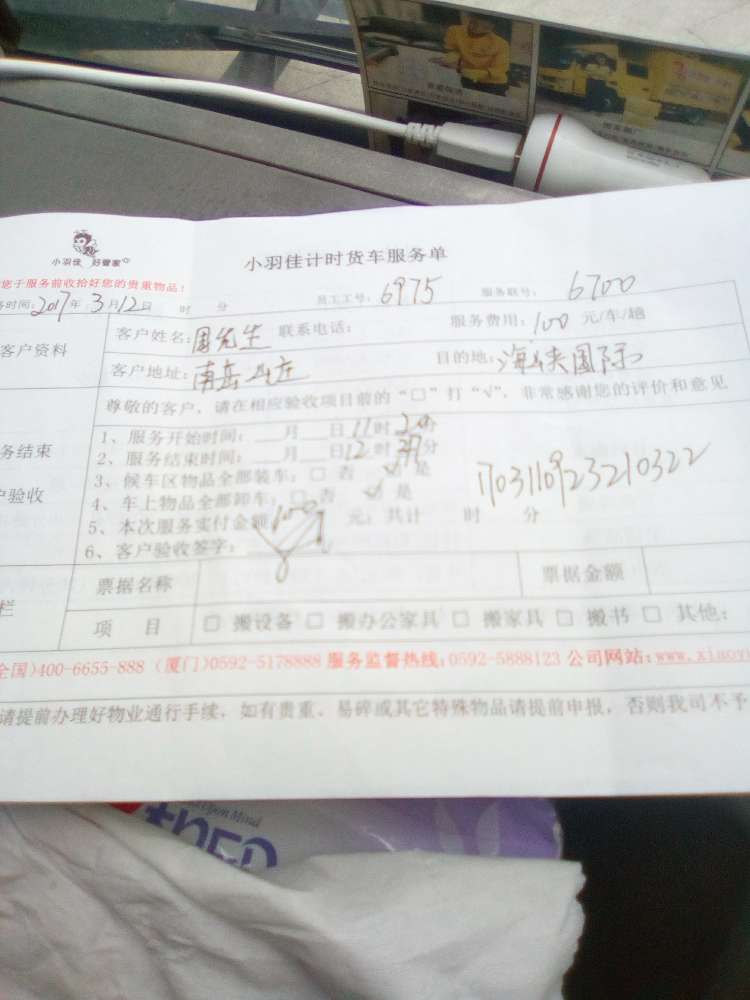 小羽佳 好管家
小羽佳计时货车服务单
您于服务前收拾好您的贵重物品!
务时间: 2017年 3月12日 时 分 员工工号: 6975 服务联号: 6700
客户资料
客户姓名: 周先生 联系电话: 服务费用: 100 元/车/趟
客户地址: 南岳山庄 目的地: 海峡国际
尊敬的客户, 请在相应验收项目前的“□”打“√”, 非常感谢您的评价和意见
务结束
户验收
1、服务开始时间: 月 日 11时 分
2、服务结束时间: 月 日 12时 分
3、候车区物品全部装车: □ 否 √ 是
4、车上物品全部卸车: □ 否 √ 是
5、本次服务实付金额: 100 元; 共计 时 分
6、客户验收签字:
栏
票据名称 票据金额
项 目 □ 搬设备 □ 搬办公家具 □ 搬家具 □ 搬书 □ 其他:
全国)400-6655-888 (厦门)0592-5178888 服务监督热线:0592-5888123 公司网站:www.xiaoyu
请提前办理好物业通行手续, 如有贵重、易碎或其它特殊物品请提前申报, 否则我司不予